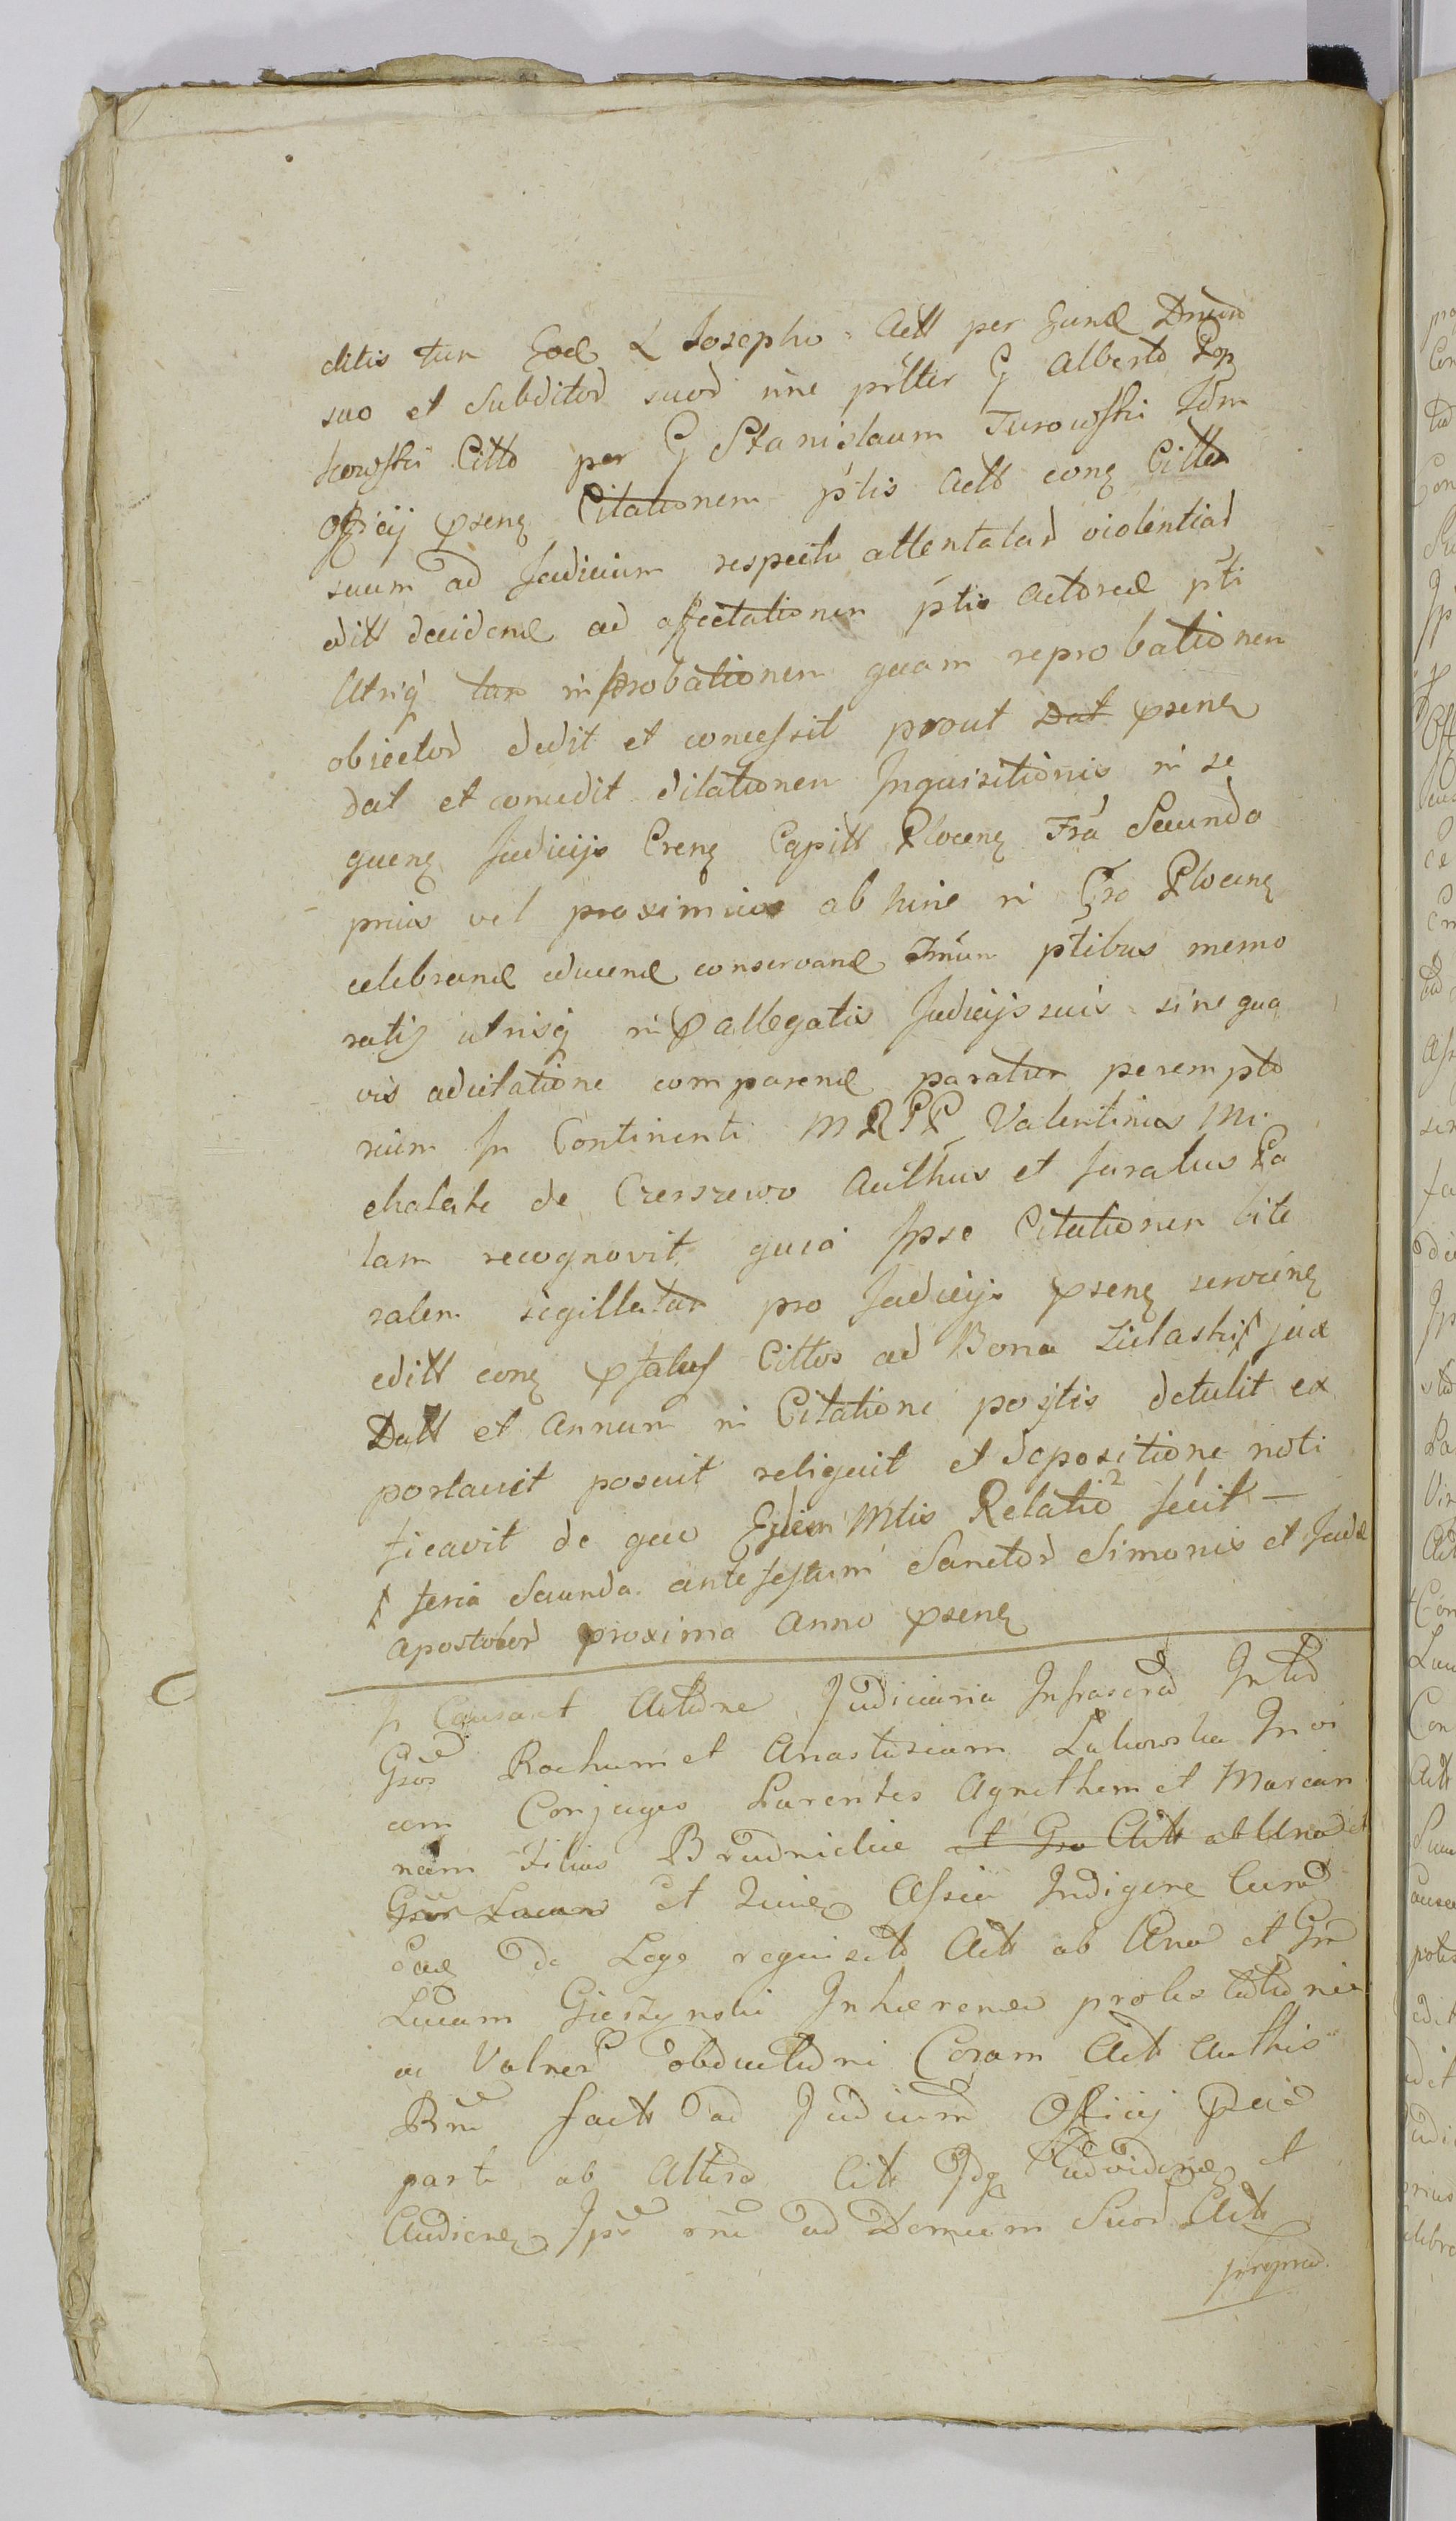 ditis tum Eod L Josepho Actt per Eund Dnum
suo et Subditor suor une pritter G Alberto Pop
kowski Citto per G Stanislaum Turowski Idm
Officij psenq Citationem ptis Actt conq Citta
suum ad Judicium respectu attentatar violentiar
editt decidend ad affectationem ptis Actored pti
Utriq tam in probationem quam reprobationem
objector dedit et concessit prout Dat psenq
dat et concedit dilationem Inquisitionis in se
quenq Judicijs Crenq Capitt Plocenq Fra Secunda
prius vel proximius ab hinc in Cro Plocenq
celebrand educend conservand Tnum ptibus memo
ratis utrisq in pallegatis Judicijs suis sine qua
vis adcitatione comparend paratum perempto
rium In Continenti MRPP Valentinus Mi
chalak de Czerszewo Autthus et Juratus Pa
lam recognovit quia Ipse Citationem lite
ralem sigillatam pro Judicijs psenq servienq
editt conq psatus Cittos ad Bona Zulaski jux
Datt et Annum in Citatione positis detulit ex
portavit posuit reliquit et depositione noti
ficavit de quo Ejdem Mtis Relatio fecit —
feria Secunda ante festum Sanctor Simonis et Judæ
Apostolor proxima Anno psenq
In Causa et Actione Judiciaria Infrascrad Inter
Gsos Rochum et Anastasiam Lukowska Invi
cem Conjuges Parentes Agnethem et Marian
nam Filias Brudnickie et Gso Actt ab Una et
Gsor Lucam et Quie Assia Indigene Curad
de Lege requisito Actt ab Una et Gsm
Lucam Gieszynski Inhærend protestationi
ac Vulner obductioni Coram Actt Authis
Rm factt ad Judicium Officij psie
parte ab Altera Citt Idq advidend et
Audiend Ips ad Domum Suor Actt